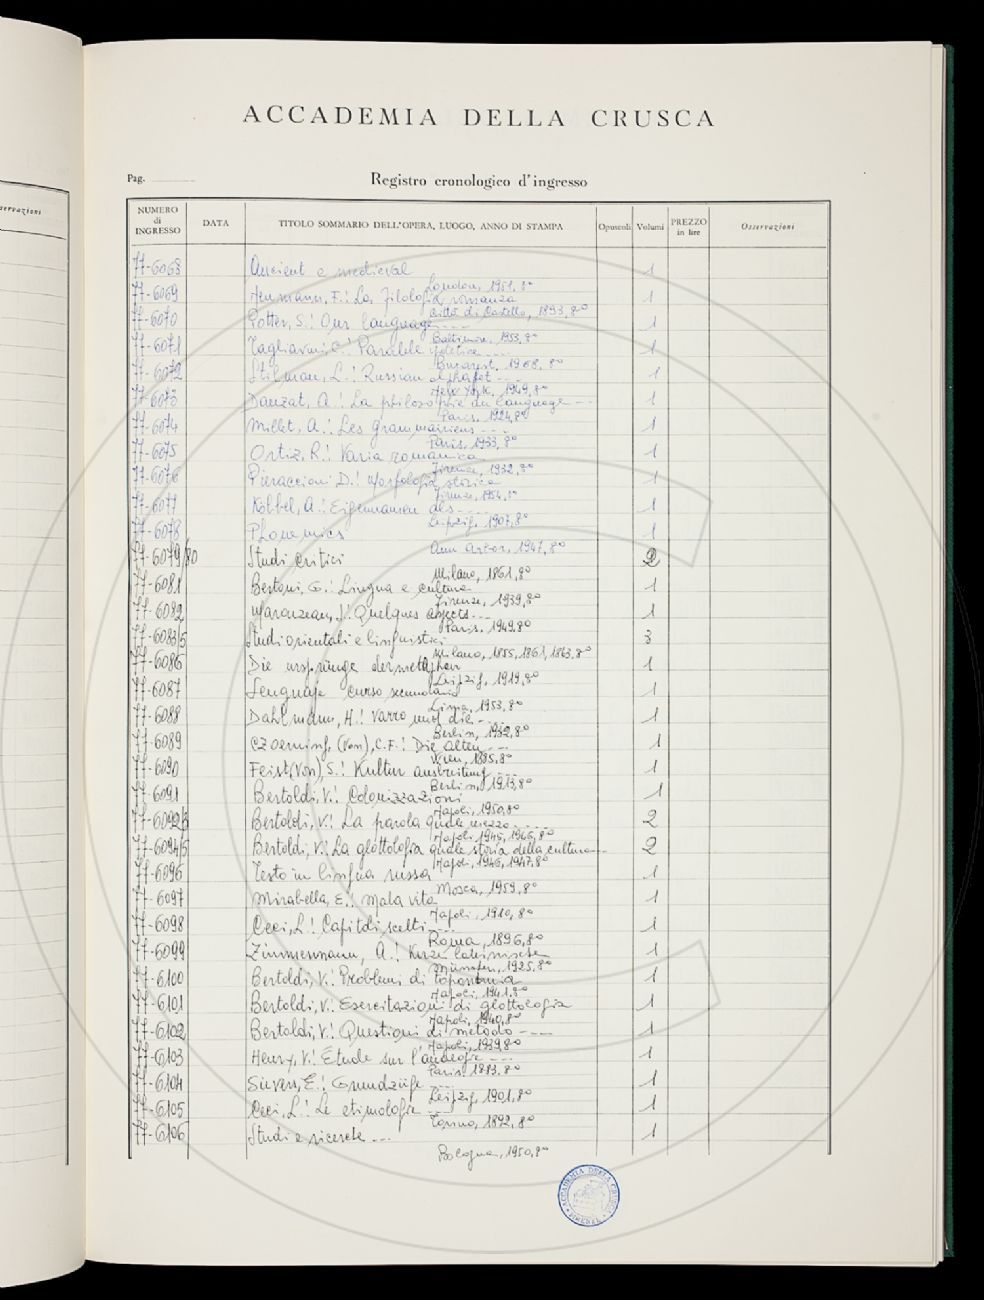 servazioni
ACCADEMIA DELLA CRUSCA
Pag.
Registro cronologico d'ingresso
NUMERO di INGRESSO DATA TITOLO SOMMARIO DELL'OPERA, LUOGO, ANNO DI STAMPA Opuscoli Volumi PREZZO in lire Osservazioni
77-6068 Ancient e medieval 1
London, 1951, 8°
77-6069 Heumann, F.: La filologia romanza 1
Città di Castello, 1893, 8°
77-6070 Potter, S.: Our language --- 1
Baltimore, 1953, 8°
77-6071 Tagliavini, C.: Parallele 1
Bucarest, 1968, 8°
77-6072 Stilman, L.: Russian alphabet -- 1
New York, 1949, 8°
77-6073 Dauzat, A.: La philosophie du language --- 1
Paris, 1924, 8°
77-6074 Millet, A.: Les grammairiens --- 1
Paris, 1933, 8°
77-6075 Ortiz, R.: Varia romanica 1
Firenze, 1932, 8°
77-6076 Pieraccioni D.: Morfologia storica 1
Firenze, 1954, 8°
77-6077 Köbbel, A.: Eigennamen als --- 1
Leipzig, 1907, 8°
77-6078 Phonemics 1
Ann Arbor, 1947, 8°
77-6079/80 Studi critici 2
Milano, 1861, 8°
77-6081 Bertoni, G.: Lingua e cultura 1
Firenze, 1939, 8°
77-6082 Marouzeau, J.: Quelques aspects --- 1
Paris, 1949, 8°
77-6083/5 Studi orientali e linguistici 3
Milano, 1855, 1861, 1863, 8°
77-6086 Die ursprünge der metapher 1
Leipzig, 1919, 8°
77-6087 Lenguaje curso secundario 1
Lima, 1953, 8°
77-6088 Dahlmann, H.: Varro und die --- 1
Berlin, 1932, 8°
77-6089 Czoernig, (von), C.F.: Die alten --- 1
Wien, 1885, 8°
77-6090 Feist (von), S.: Kultur ausbreitung --- 1
Berlin, 1913, 8°
77-6091 Bertoldi, V.: Colonizzazioni 1
Napoli, 1950, 8°
77-6092/3 Bertoldi, V.: La parola quale mezzo --- 2
Napoli 1945, 1946, 8°
77-6094/5 Bertoldi, V.: La glottologia quale storia della cultura --- 2
Napoli, 1946, 1947, 8°
77-6096 Testo in lingua russa 1
Mosca, 1959, 8°
77-6097 Mirabella, E.: Mala vita 1
Napoli, 1910, 8°
77-6098 Ceci, L.: Capitoli scelti --- 1
Roma, 1896, 8°
77-6099 Zimmermann, A.: Kurze lateinische 1
Münster, 1925, 8°
77-6100 Bertoldi, V.: Problemi di toponomia 1
Napoli, 1941, 8°
77-6101 Bertoldi, V.: Esercitazioni di glottologia 1
Napoli, 1940, 8°
77-6102 Bertoldi, V.: Questioni di metodo --- 1
Napoli, 1939, 8°
77-6103 Henry, V.: Étude sur l'analogie --- 1
Paris, 1883, 8°
77-6104 Sievers, E.: Grundzüge --- 1
Leipzig, 1901, 8°
77-6105 Ceci, L.: Le etimologie --- 1
Torino, 1892, 8°
77-6106 Studi e ricerche --- 1
Bologna, 1950, 8°
ACCADEMIA DELLA CRUSCA
FIRENZE